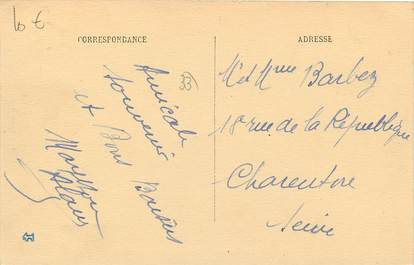 10 €
CORRESPONDANCE
Amicale
souvenir
et Bons Baisers
ADRESSE
M et Mme Barbez
18 rue de la République
Charenton
Seine